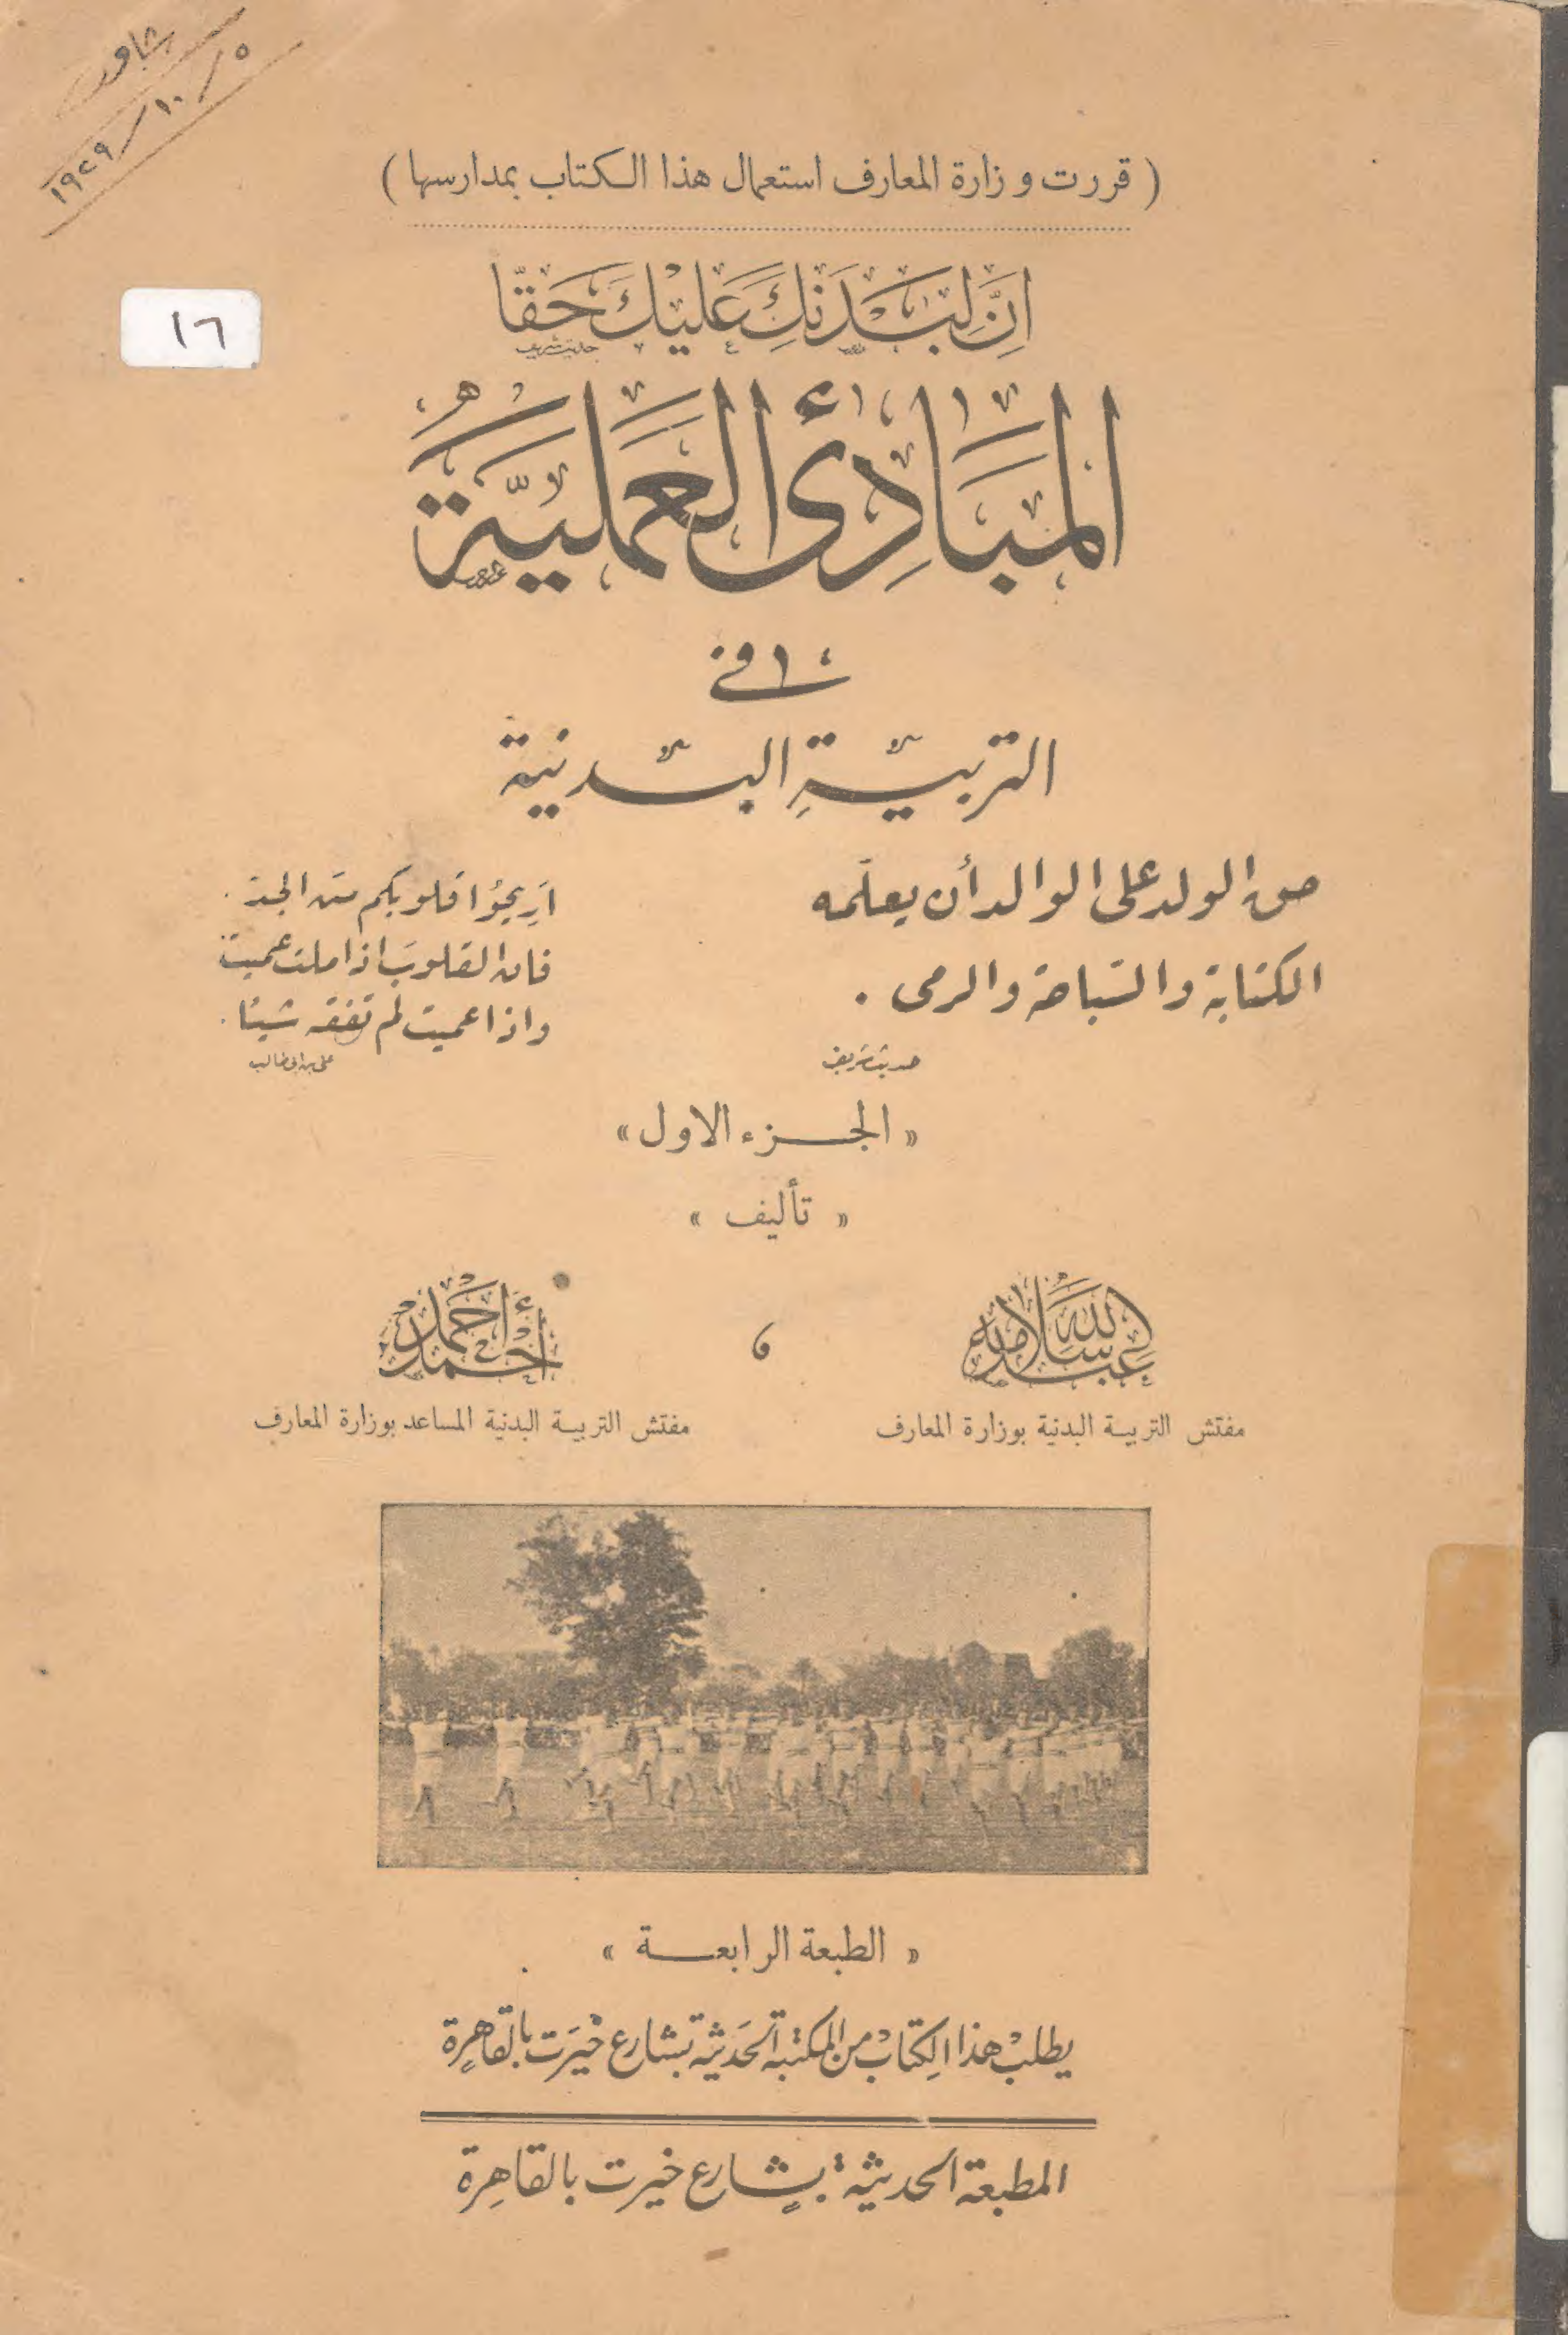 ١٩٢٩/١٠/٥
( قررت وزارة المعارف استعمال هذا الكتاب بمدارسها )
١٦
اِنَّ لِبَدَنِكَ عَلَيْكَ حَقًّا
حديث شريف
المبَادِئ العَمَليَّة
في
التربيَّةِ البدنية
حق الولد على الوالد أن يعلّمه
الكتابة والسّباحة والرمى .
حديث شريف
اَرِيحُوا قلوبكم من الجد .
فان القلوبَ اذا ملت عميت
واذا عميت لم تفقه شيئا .
على بن ابى طالب
« الجـزء الاول »
« تأليف »
عبد الله سلامه
و
أحمد أحمد
مفتش التربيـة البدنية بوزارة المعارف
مفتش التربيـة البدنية المساعد بوزارة المعارف
« الطبعة الرابعـة »
يطلب هذا الكِتاب من المكتبة الحَديثة بشارع خَيرَت بالقاهِرة
المطبعة الحديثة بشارع خيرت بالقاهِرة